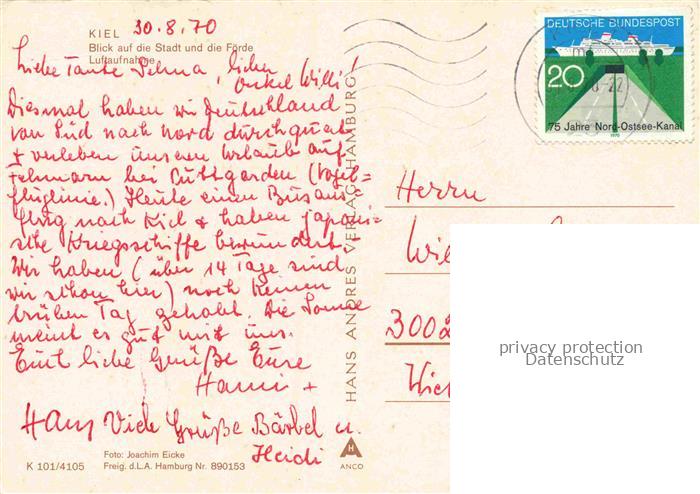 KIEL 30.8.70
Blick auf die Stadt und die Förde
Luftaufnahme
Liebe Tante Selma, lieber
Onkel Willi!
Diesmal haben wir Deutschland
von Süd nach Nord durchquert
+ verleben unseren Urlaub auf
Fehmarn bei Puttgarden (Vogel=
fluglinie.) Heute einen Busaus-
flug nach Kiel & haben japani=
sche Kriegsschiffe bewundert.
Wir haben (über 14 Tage sind
wir schon hier) noch keinen
trüben Tag gehabt. Die Sonne
meint es gut mit uns.
Euch liebe Grüße Eure
Hanni +
Hans Viele Grüße Bärbel u.
Heidi
Foto: Joachim Eicke
K 101/4105 Freig. d.L.A. Hamburg Nr. 890153
HANS ANDRES VERLAG HAMBURG
H
ANCO
DEUTSCHE BUNDESPOST
20
75 Jahre Nord-Ostsee-Kanal
1970
Herrn
3002
privacy protection
Datenschutz